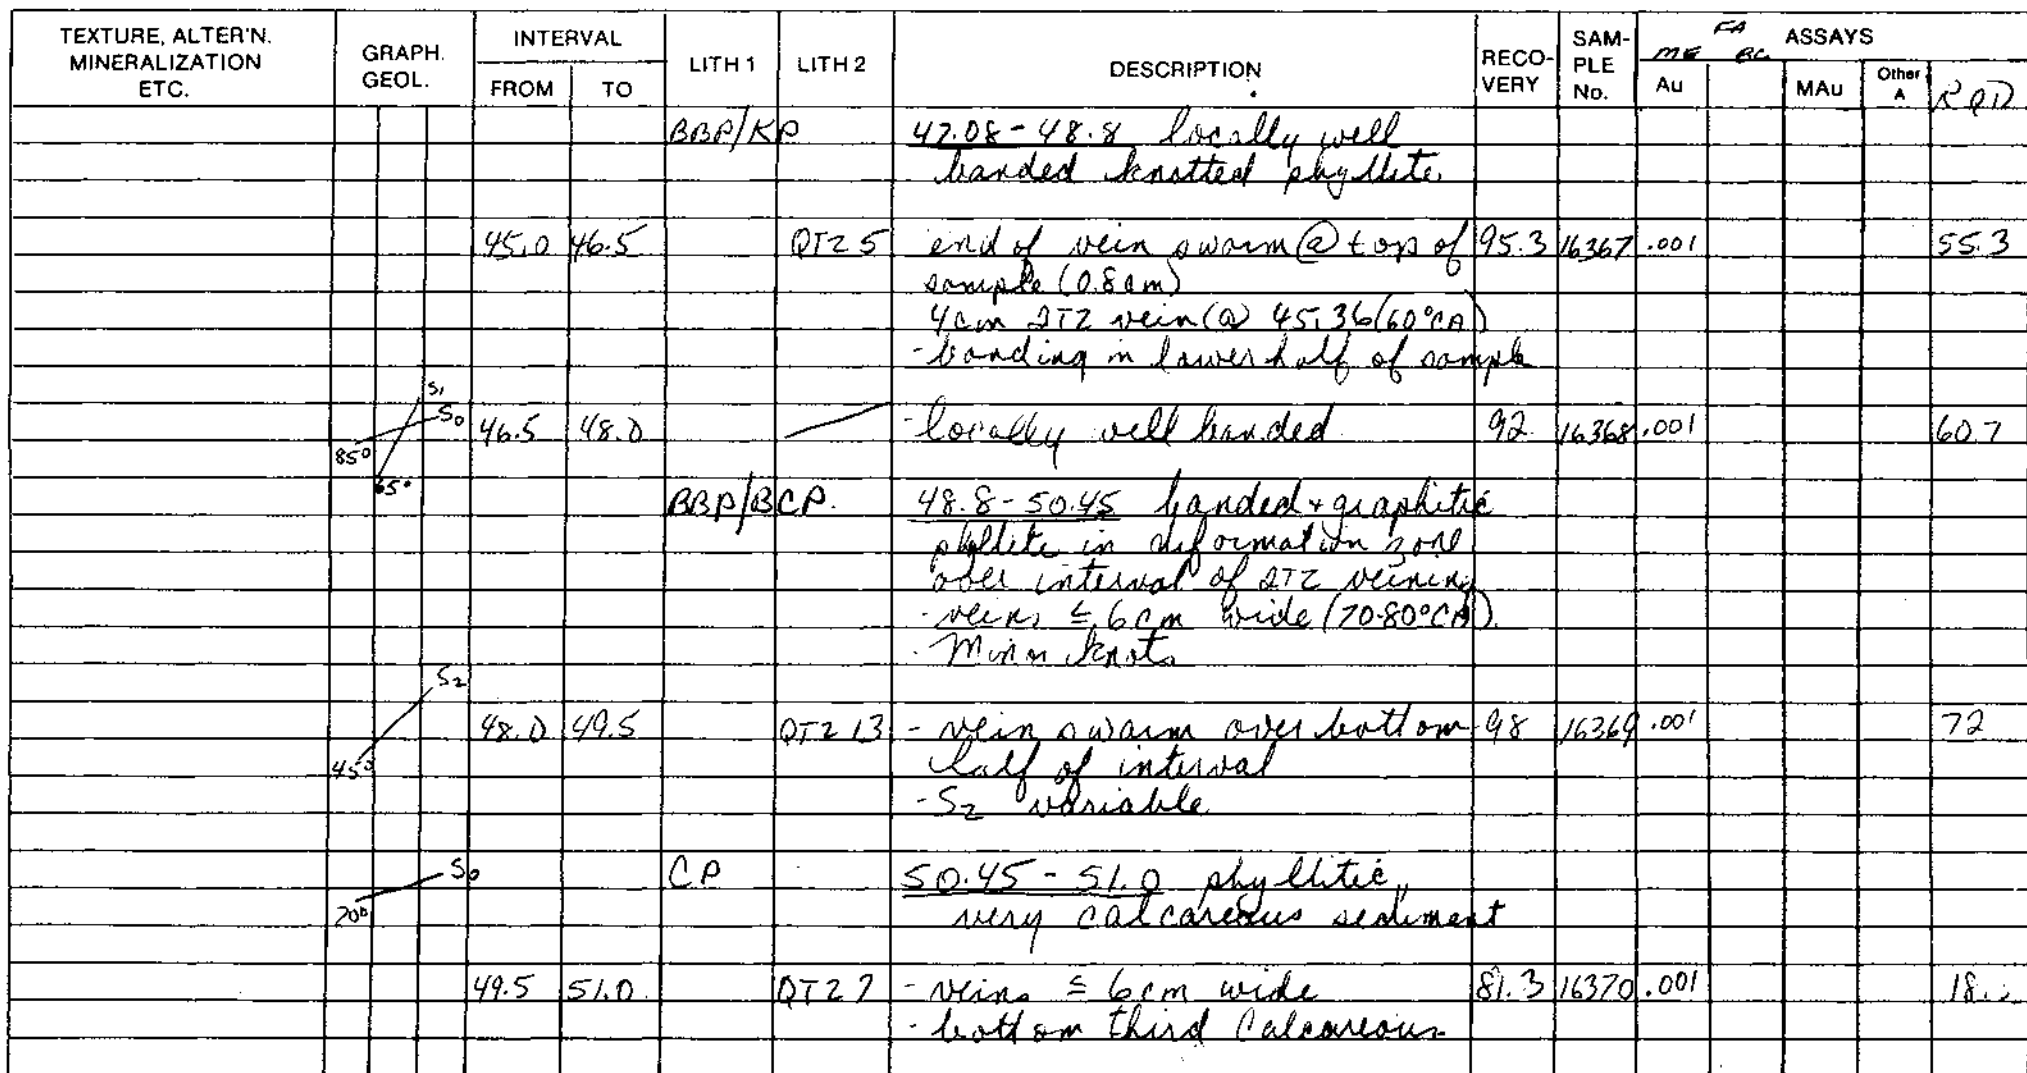 TEXTURE, ALTER'N. MINERALIZATION ETC. GRAPH. GEOL. INTERVAL FROM TO LITH 1 LITH 2 DESCRIPTION RECO-VERY SAM-PLE No. FA ASSAYS ME Au MAu Other A RQD
BBP/KP 47.08-48.8 locally well
banded knotted phyllite.
45.0 46.5 QTZ 5 end of vein swarm @ top of 95.3 16367 .001 55.3
sample (0.8cm)
4cm QTZ vein @ 45.36 (60°CA)
- banding in lower half of sample
S1
S0 46.5 48.0 - locally well banded 92 16368 .001 60.7
85°
65°
BBP/BCP. 48.8-50.45 banded + graphitic
phyllite in deformation zone
over interval of QTZ veining
- veins ≤ 6cm wide (70-80°CA).
- Minor knots
S2
48.0 49.5 QTZ 13 - vein swarm over bottom 98 16369 .001 72
45° half of interval
- S2 variable
S0 CP 50.45 - 51.0 phyllitic,
70° very calcareous sediment
49.5 51.0 QTZ 7 - veins ≤ 6cm wide 81.3 16370 .001
- bottom third Calcareous